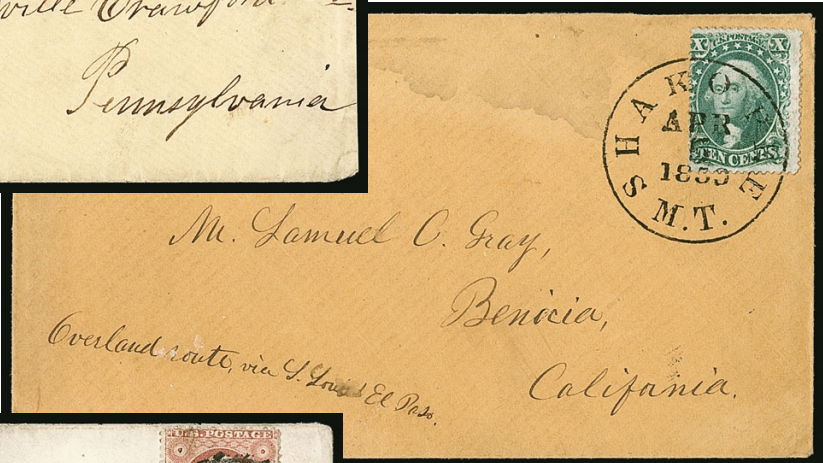 ville Crawford
Pennsylvania
X U.S. POSTAGE X
TEN CENTS
SHAKOPEE
APR
1859
M.T.
Mr. Samuel C. Gray,
Benicia,
California.
Overland route, via S. Louis & El Paso.
U.S. POSTAGE